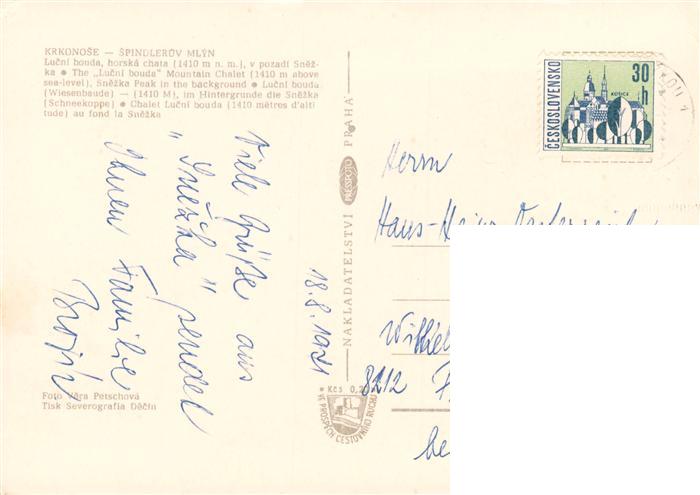 KRKONOŠE — ŠPINDLERŮV MLÝN
Luční bouda, horská chata (1410 m n. m.), v pozadí Sněž-
ka ● The „Luční bouda" Mountain Chalet (1410 m above
sea-level), Sněžka Peak in the background ● Luční bouda
(Wiesenbaude) — (1410 M), im Hintergrunde die Sněžka
(Schneekoppe) ● Chalet Luční bouda (1410 mètres d'alti
tude) au fond la Sněžka
Viele Grüße aus
„Sněžka" sendet
Ihnen Familie
18.8.1971
Foto Věra Petschová
Tisk Severografia Děčín
NAKLADATELSTVÍ PRESSFOTO PRAHA
Kčs 0,2
VE PROSPĚCH CESTOVNÍHO RUCHU
ČESKOSLOVENSKO
30 h
KOŠICE
Herrn
Hans-
8212